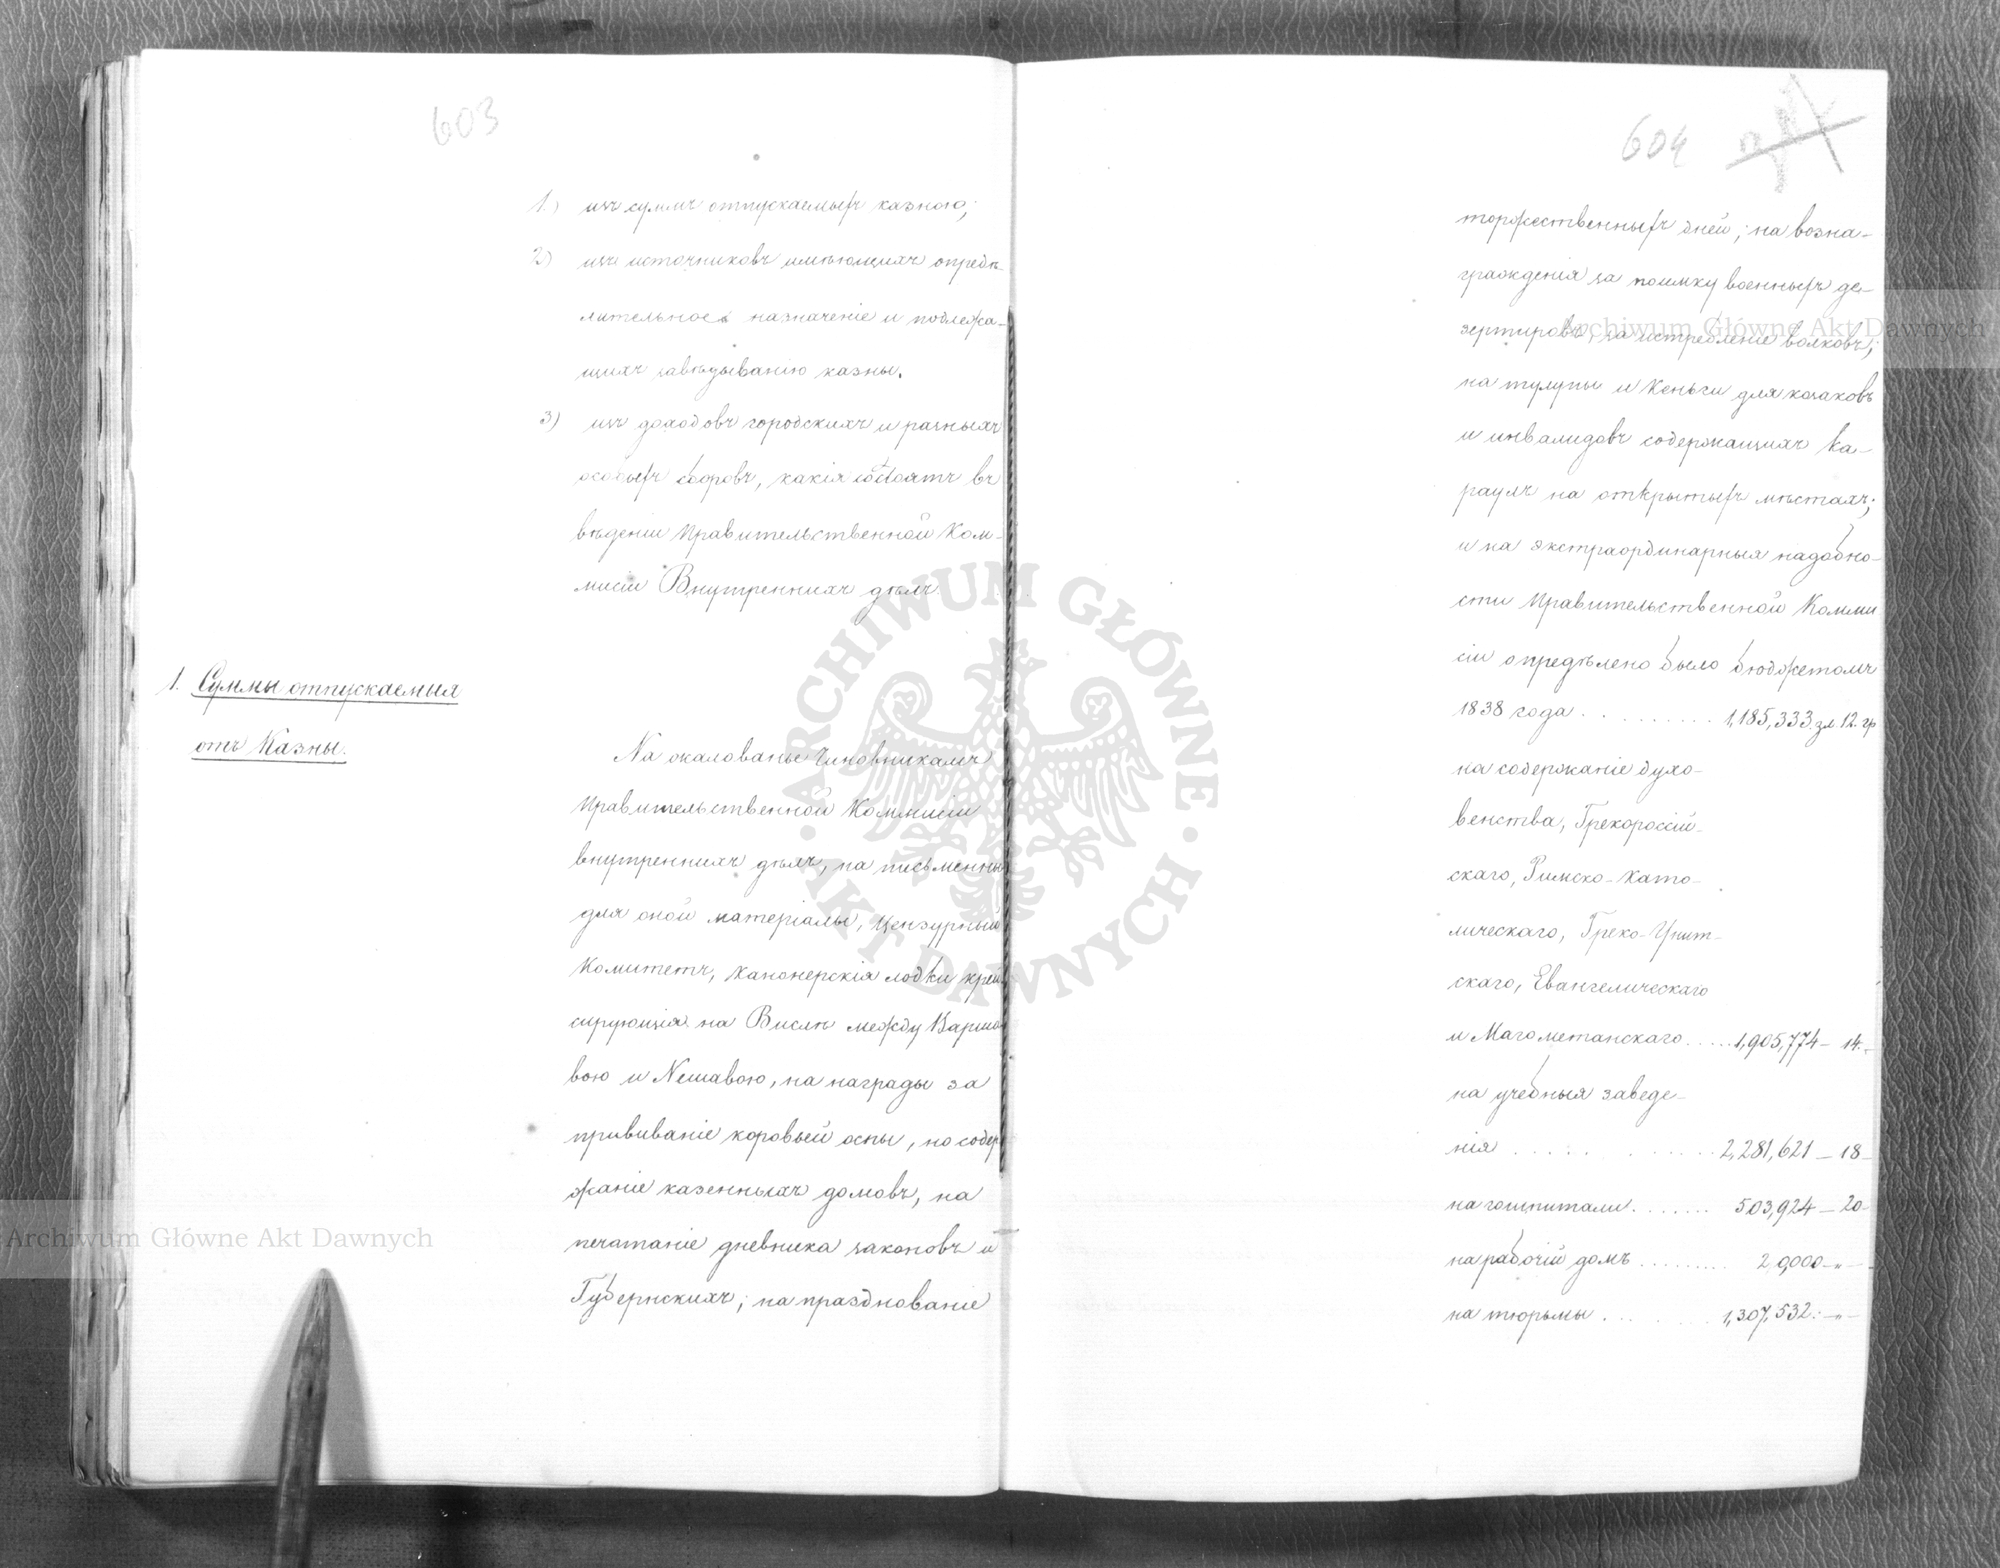 603
1.) изъ суммъ отпускаемыхъ казною;
2) изъ источниковъ имѣющихъ опредѣ-
лительное назначеніе и подлежа-
щихъ завѣдыванію казны.
3) изъ доходовъ городскихъ и разныхъ
особыхъ сборовъ, какія состоятъ въ
вѣденіи Правительственной Ком-
мисіи Внутреннихъ дѣлъ.
1. Суммы отпускаемыя
отъ Казны.
На жалованье Чиновникамъ
Правительственной Коммисіи
внутреннихъ дѣлъ, на письменны
для оной матеріалы, Цензурный
Комитетъ, Канонерскія лодки крей
сирующія на Вислѣ между Варша
вою и Нешавою, на награды за
прививаніе коровьей оспы, на содер
жаніе казенныхъ домовъ, на
печатаніе дневника законовъ и
Губернскихъ; на празднованіе
604
торжественныхъ дней; на возна-
гражденія за поимку военныхъ де-
зертировъ, за истребленіе волковъ;
на тулупы и Кеньги для козаковъ
и инвалидовъ содержащихъ ка-
раулъ на открытыхъ мѣстахъ;
и на экстраординарныя надобно-
сти Правительственной Комми
сіи опредѣлено было бюджетомъ
1838 года . . . . . . . . . 1,185,333 зл. 12. гр
на содержаніе духо-
венства, Грекороссій-
скаго, Римско-Като-
лическаго, Греко-Унит-
скаго, Евангелическаго
и Магометанскаго . . . . . 1,905,774 — 14. -
на учебныя заведе-
нія . . . . . . . . . . . 2,281,621 — 18 -
на гошпитали . . . . . . . 503,924 — 20 -
на рабочій домъ . . . . . . . . . 20,000 — „ —
на тюрьмы . . . . . . . 1,307,532: — „ —
Archiwum Główne Akt Dawnych
Archiwum Główne Akt Dawnych
ARCHIWUM GŁÓWNE · AKT DAWNYCH ·